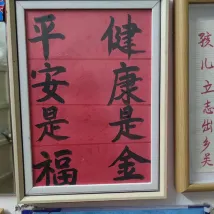 健康是金
平安是福
孩儿立志出乡关